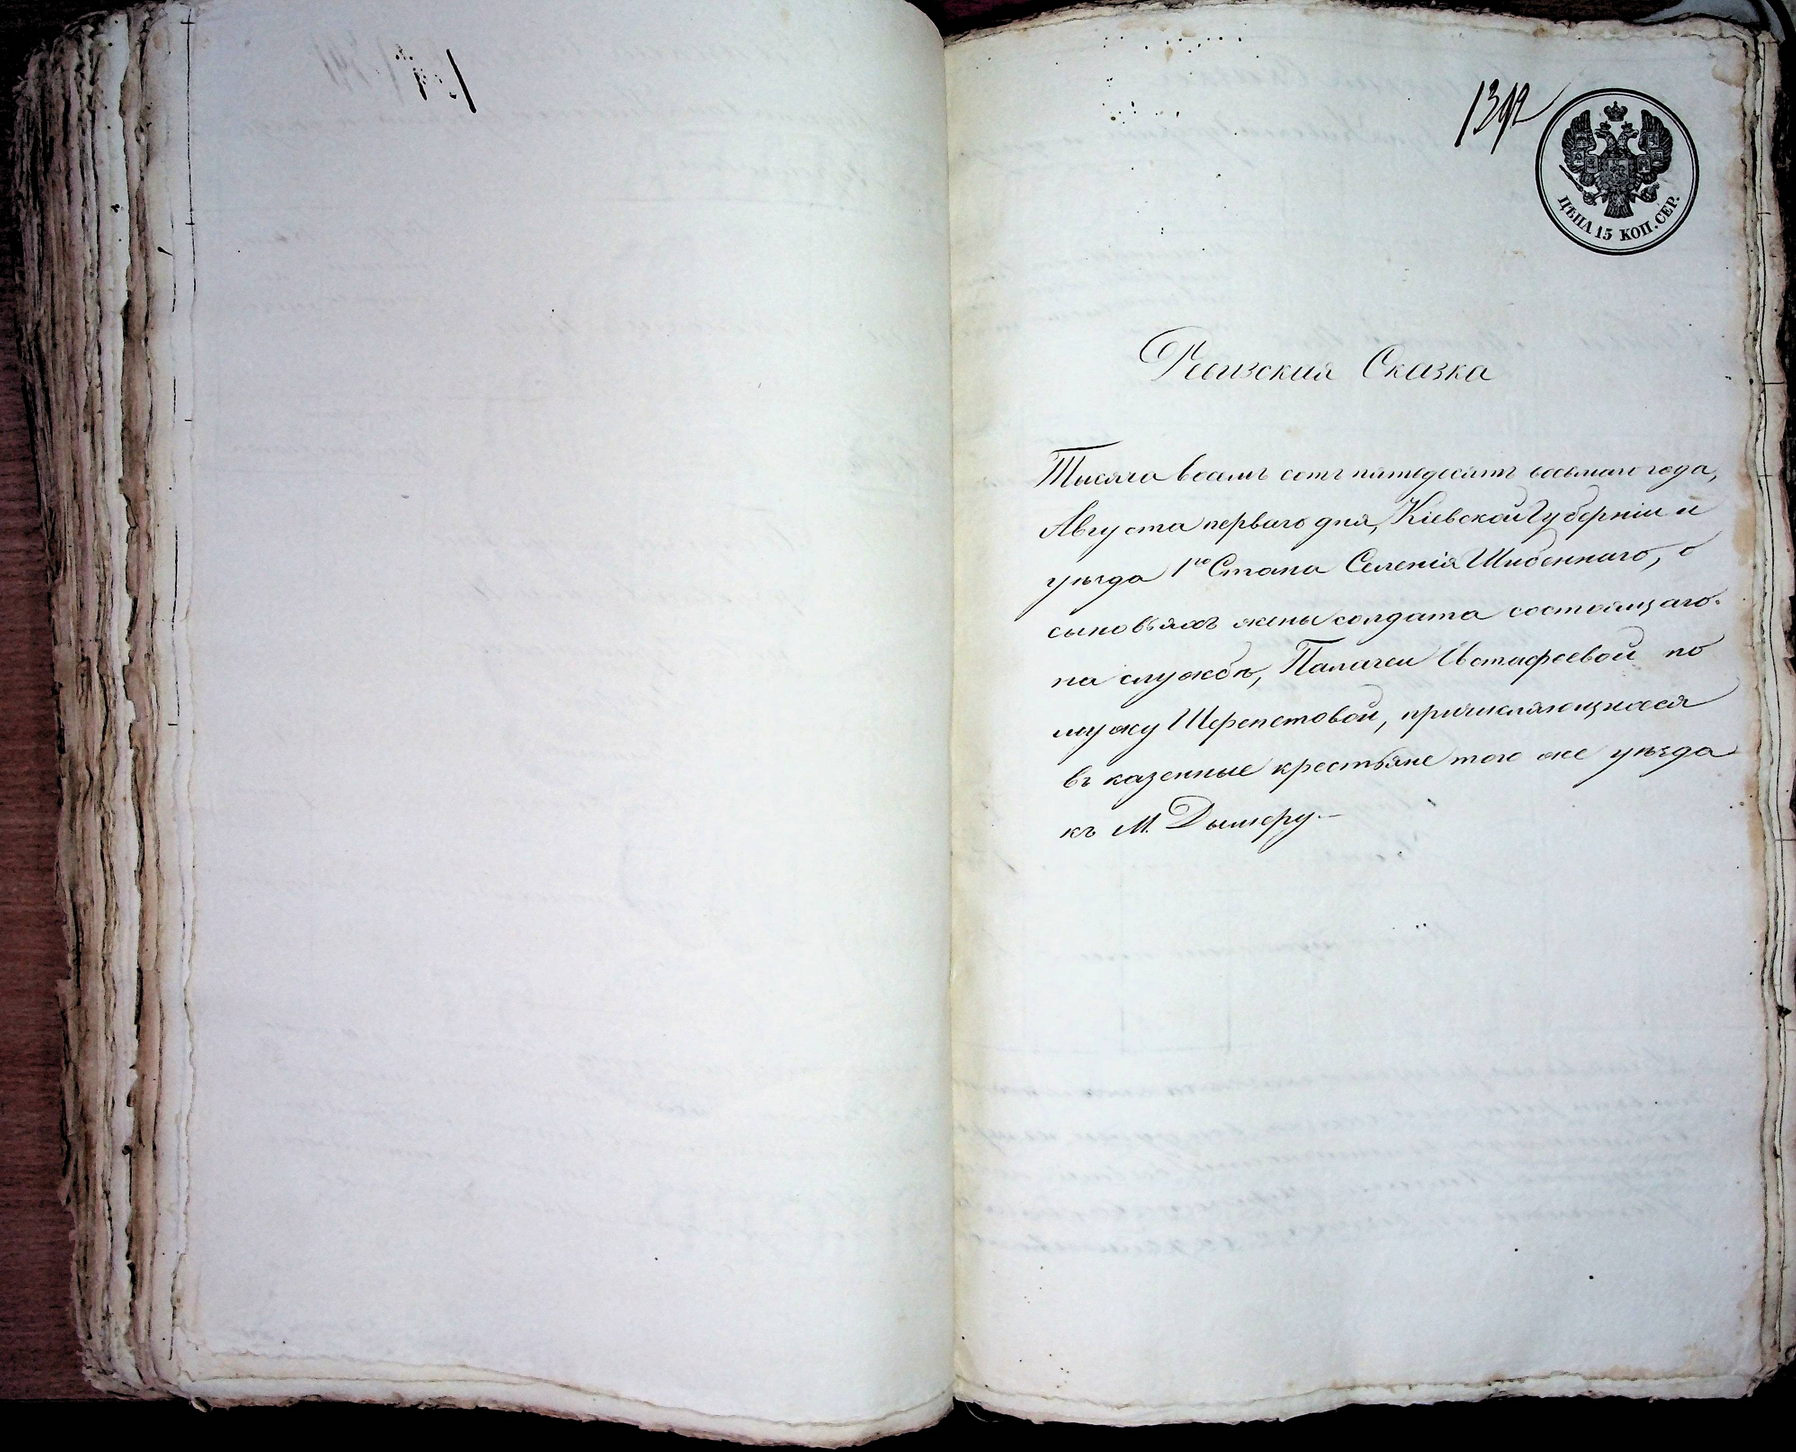 1392
ЦѢНА 15 КОП. СЕР.
Ревизская Сказка
Тысяча восемь сотъ пятьдесятъ восьмаго года,
Августа перваго дня, Кіевской Губерніи и
уѣзда 1го Стана Селенія Шибеннаго, о
сыновьяхъ жены солдата состоящаго
на службѣ, Палагеи Истафеевой по
мужу Шерепетовой, причисляющихся
въ казенные крестьяне того же уѣзда
къ М. Дымеру.—